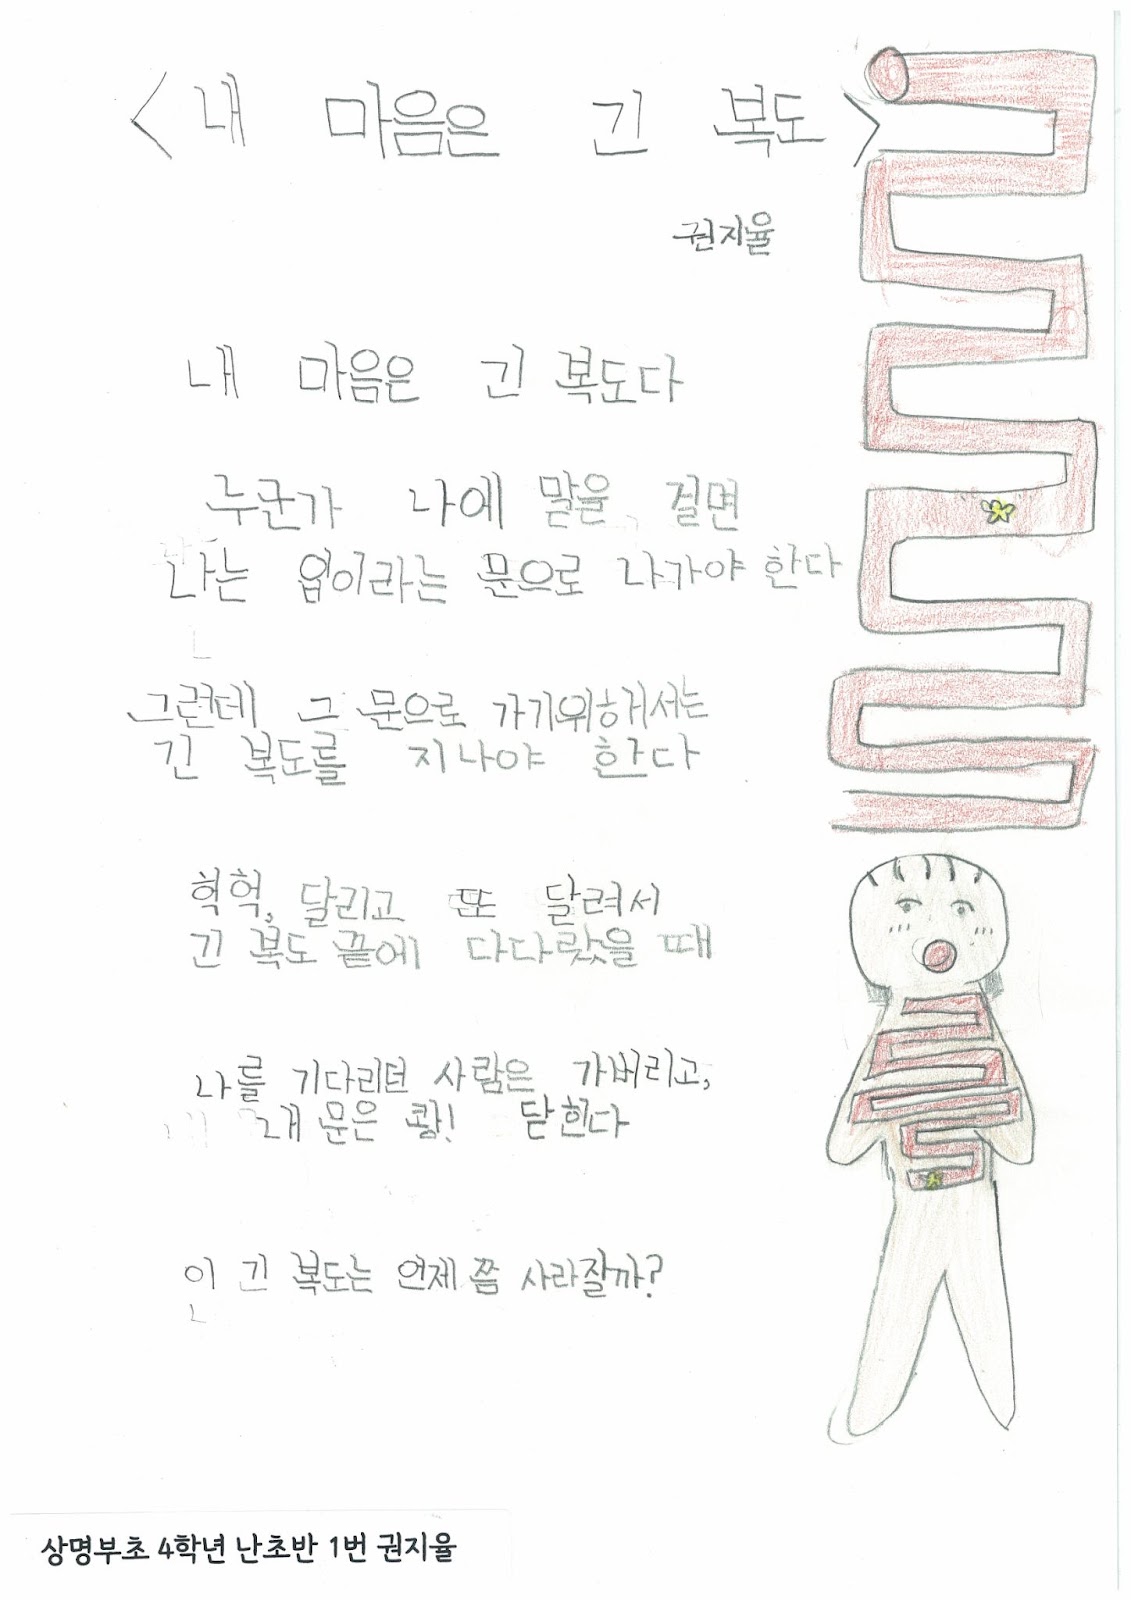 <내 마음은 긴 복도>
권지율
내 마음은 긴 복도다
누군가 나에 말을 걸면
나는 입이라는 문으로 나가야 한다
그런데 그 문으로 가기위해서는
긴 복도를 지나야 한다
헉헉, 달리고 또 달려서
긴 복도 끝에 다다랐을 때
나를 기다리던 사람은 가버리고,
내 문은 쾅! 닫힌다
이 긴 복도는 언제 쯤 사라질까?
상명부초 4학년 난초반 1번 권지율